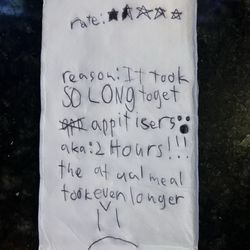 rate: ★★☆☆☆
reason: It took
SO LONG to get
appitisers
aka: 2 Hours!!!
the at ual meal
took even longer